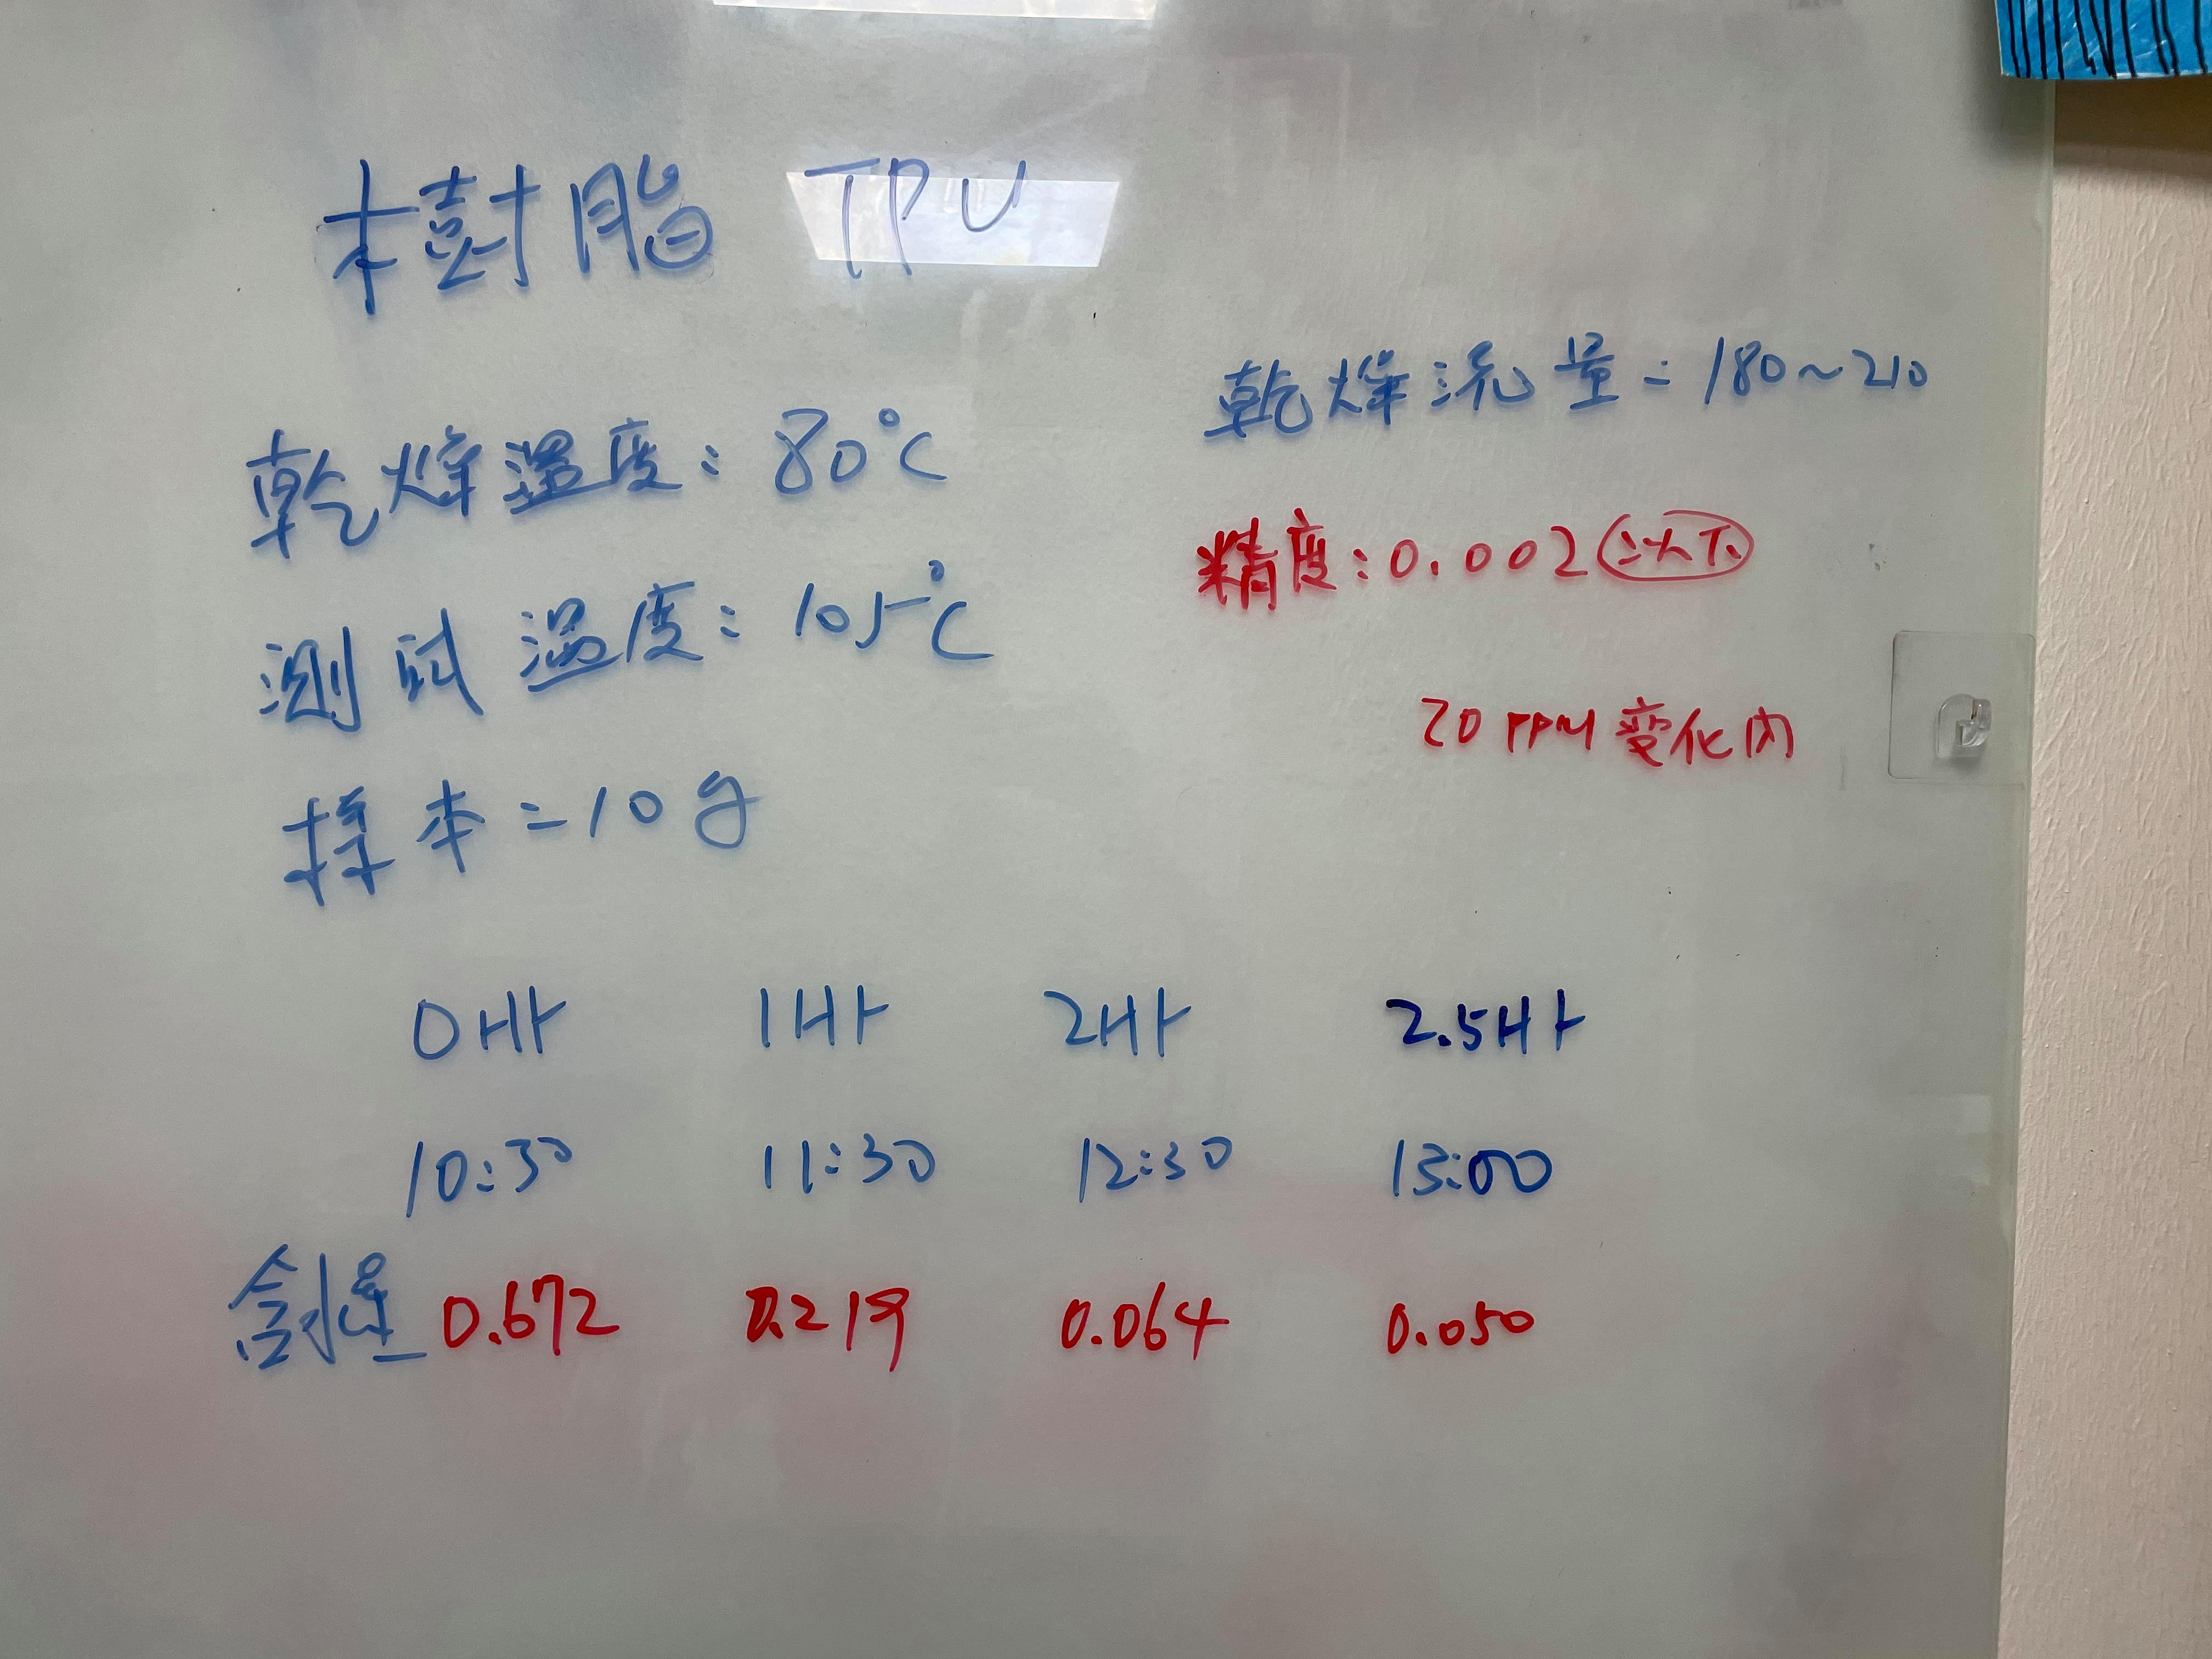 樹脂 TPU
乾燥溫度：80°C
測試溫度：105°C
樣本=10g
乾燥流量=180~210
精度：0.002以下
20 PPM 变化內
0Hr 1Hr 2Hr 2.5Hr
10:30 11:30 12:30 13:00
含水率 0.672 0.219 0.064 0.050